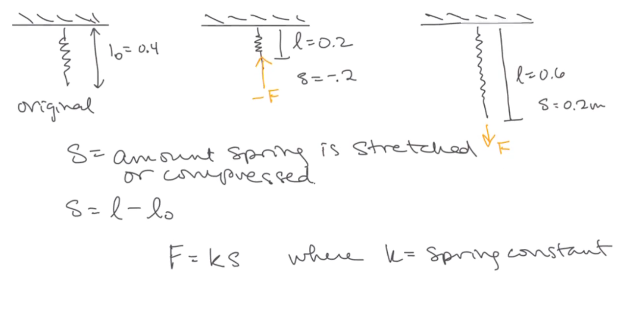 l₀ = 0.4
original
l = 0.2
s = -.2
-F
l = 0.6
s = 0.2m
F
s = amount spring is stretched
or compressed
s = l - l₀
F = ks where k = spring constant